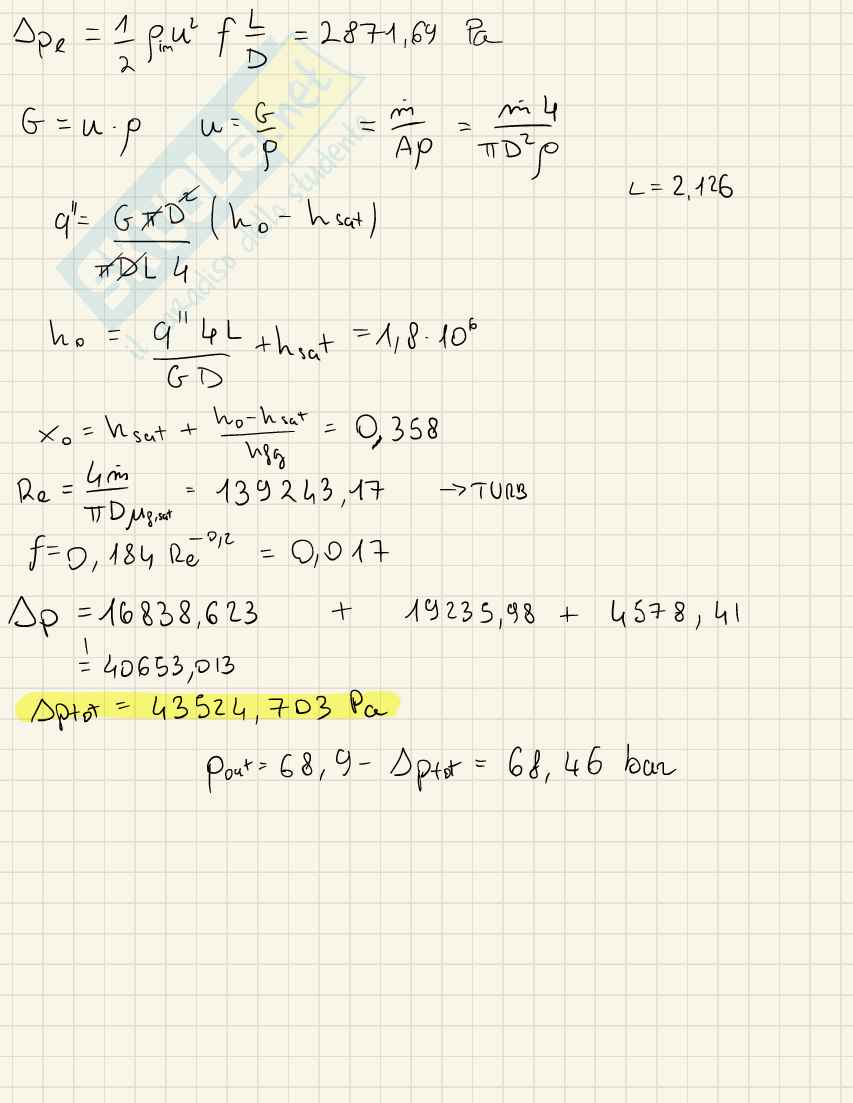 Δpe = 1/2 ρim u² f L/D = 2871,69 Pa
G = u · ρ u = G/ρ = ṁ/Aρ = ṁ4/πD²ρ
L = 2,126
q'' = GπD²/πDL4 (ho - hsat)
ho = q''4L/GD + hsat = 1,8 · 10⁶
xo = hsat + ho-hsat/hfg = 0,358
Re = 4ṁ/πDμf,sat = 139243,17 → TURB
f = 0,184 Re^-0,2 = 0,017
Δp = 16838,623 + 19235,98 + 4578,41
= 40653,013
Δptot = 43524,703 Pa
pout = 68,9 - Δptot = 68,46 bar
skuola.net
il paradiso dello studente